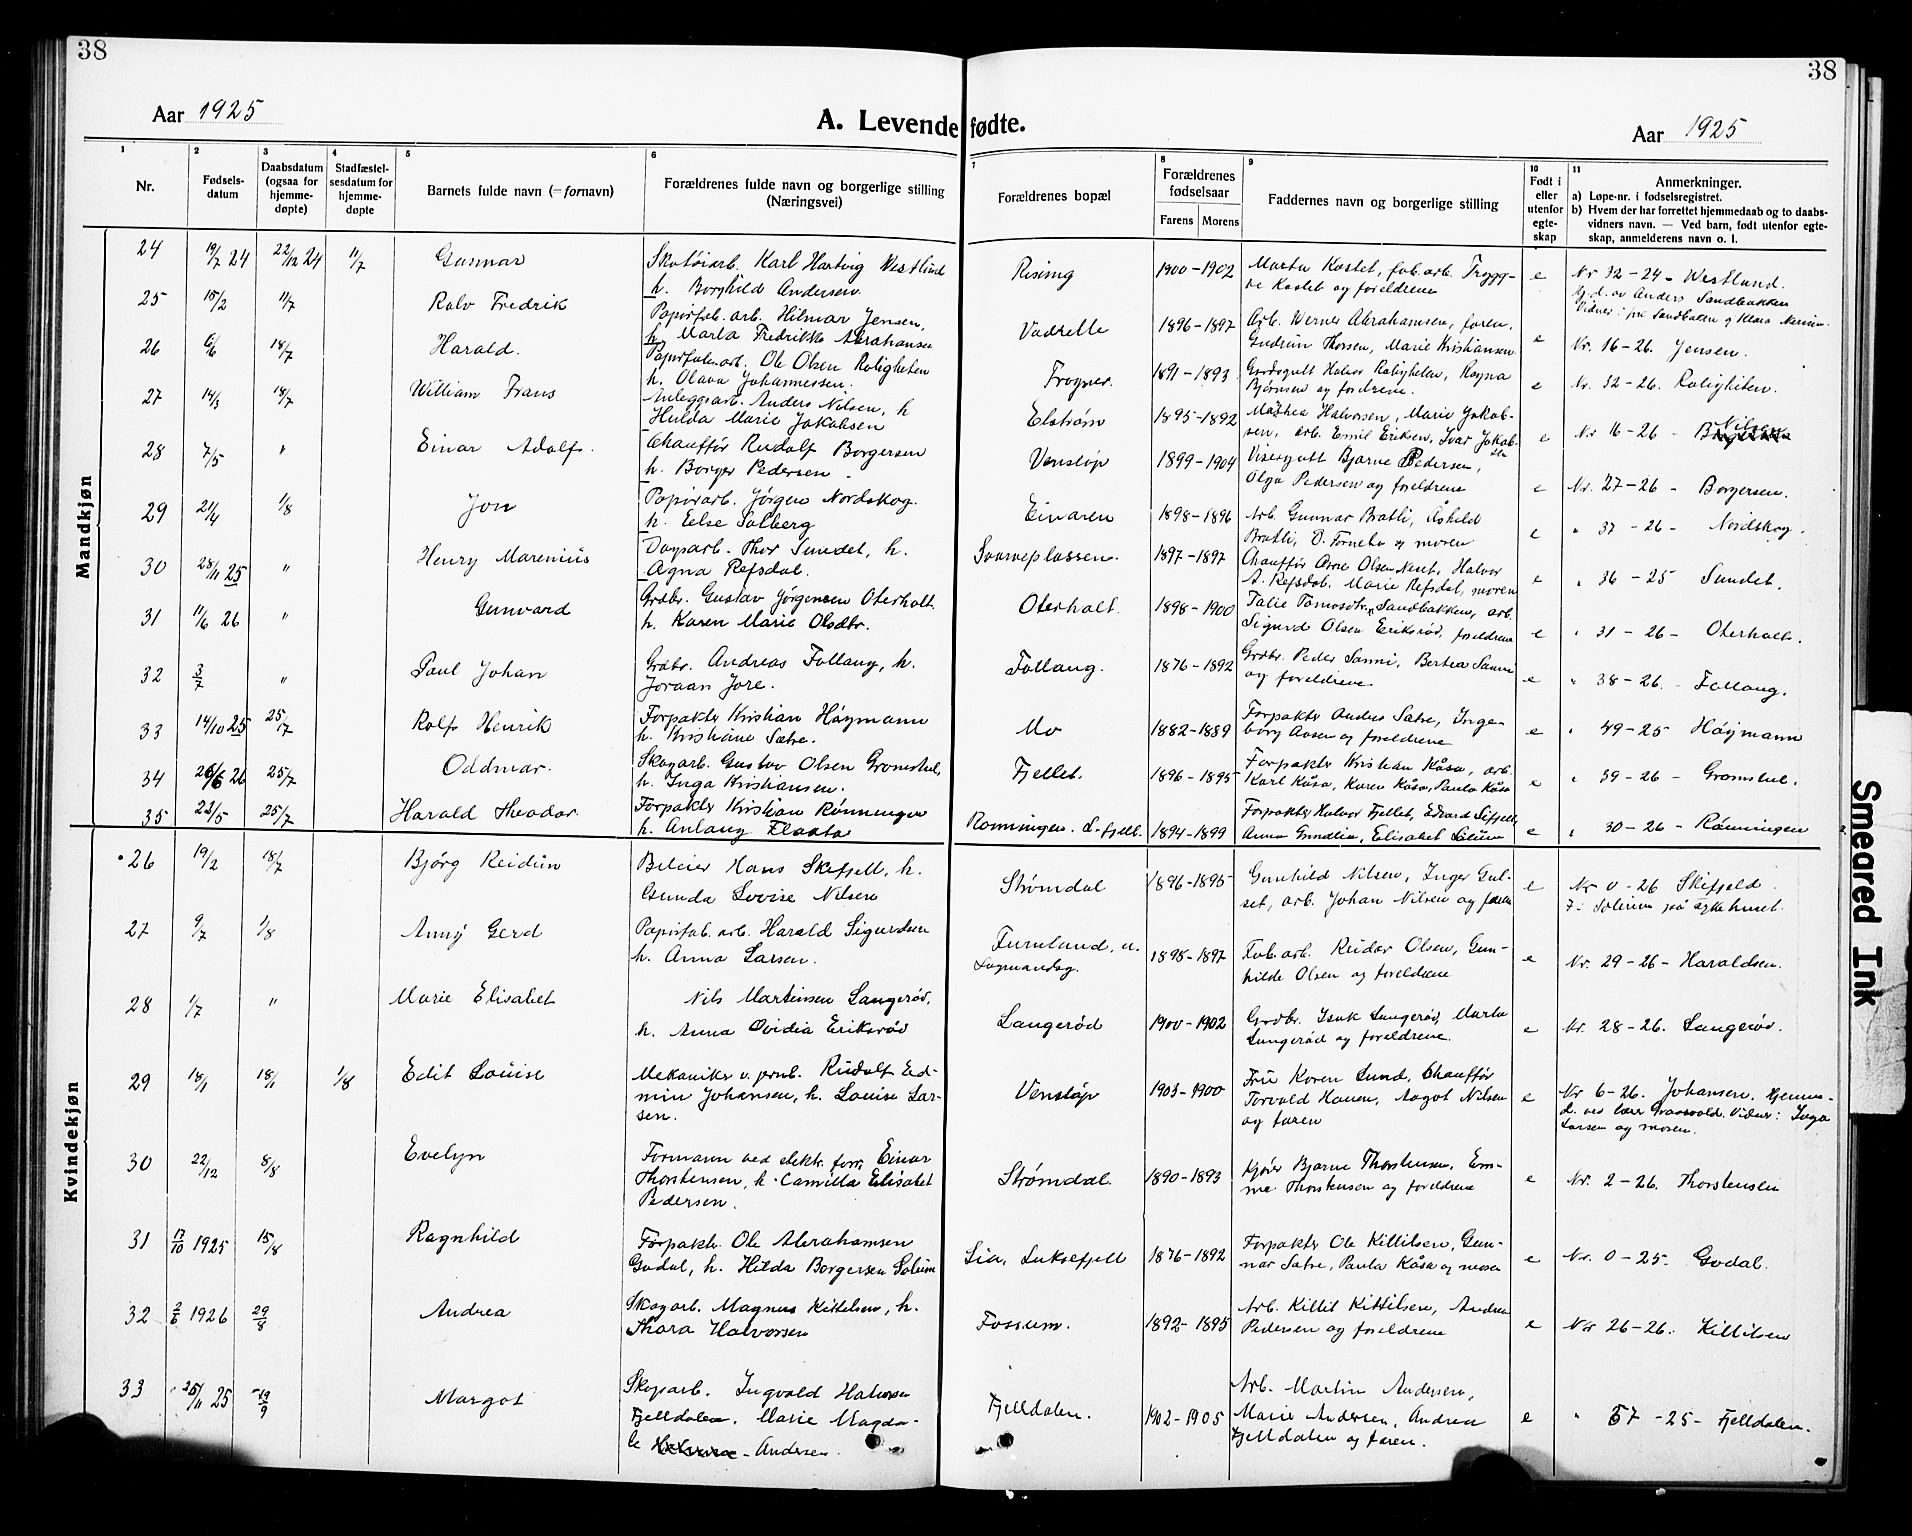 38
38
Aar 1925
A. Levende fødte.
Aar 1925
1 2 3 4 5 6 7 8 9 10 11
Nr.
Fødsels-
datum
Daabsdatum
(ogsaa for
hjemme-
døpte)
Stadfæstel-
sesdatum for
hjemme-
døpte
Barnets fulde navn (= fornavn)
Forældrenes fulde navn og borgerlige stilling
(Næringsvei)
Forældrenes bopæl
Forældrenes
fødselsaar
Farens Morens
Faddernes navn og borgerlige stilling
Født i
eller
utenfor
egte-
skap
Anmerkninger.
a) Løpe-nr. i fødselsregistret.
b) Hvem der har forrettet hjemmedaab og to daabs-
vidners navn. — Ved barn, født utenfor egte-
skap, anmelderens navn o. l.
Mandkjøn
24 19/7 24 22/12 24 11/7 Gunnar Skotøiarb. Karl Hartvig Westlund
h. Borghild Andersen Rising 1900-1902 Marta Kastet, fab. arb. Trygg-
ve Kastet og foreldrene e Nr 32-24- Westlund.
Hj. d. av Anders Sandbakken
25 15/2 11/7 Rolv Fredrik Papirfab. arb. Hilmar Jensen,
h. Marta Fredrikke Abrahamsen Vadrette 1896-1897 Arb. Werner Abrahamsen, faren,
Gudrun Thorsen, Marie Kristiansen e Nr. 16-26. Jensen.
26 6/6 18/7 Harald. Papirfab. arb. Ole Olsen Roligheten
h. Olava Johannessen. Frogner. 1891-1893 Gardsgutt Halvor Roligheten, Ragna
Bjørnsen og foreldrene. e Nr. 32-26. Roligheten.
27 14/3 18/7 William Frans Anleggsarb. Anders Nilsen, h
Hulda Marie Jakobsen Elstrøm 1895-1892 Mathea Halvorsen, Marie Jakob-
sen, arb. Emil Eriksen, Ivar Jakob-
sen e Nr 16-26 - Nilsen
28 7/5 " Einar Adolf. Chauffør Rudolf Borgersen
h. Borger Pedersen Venstøp 1899-1904 Visergutt Bjarne Pedersen,
Olga Pedersen og foreldrene e Nr. 27-26 - Borgersen.
29 21/4 1/8 Jon Papirarb. Jørgen Nordskog.
h. Else Solberg Einaren 1898-1896 Arb. Gunnar Bratli, Åshild
Bratli, O. Torneho og moren e " 37-26 - Nordskog.
30 25/11 25 " Henry Marenius Dagsarb. Thor Sundet, h.
Agna Refsdal. Svarveplassen. 1897-1897 Chauffør Arne Olsen Neset, Halvor
A. Refsdal. Marie Refsdal, moren e " 36-25 Sundet.
31 11/6 26 " Gunvard Grdbr. Gustav Jørgensen Oterholt
h. Karen Marie Olsdtr. Oterholt. 1898-1900 Talie Tomasdtr. Sandbakken, arb.
Sigurd Olsen Eriksrød, foreldrene e " 31-26- Oterholt.
32 3/7 " Paul Johan Grdbr. Andreas Follaug, h.
Joraan Jore. Follaug. 1876-1892 Grdbr. Peder Sanni, Bertea Sanni
og foreldrene e " 38-26. Follaug.
33 14/10 25 25/7 Rolf Henrik Forpakter Kristian Høymann
h. Kristiane Sætre. Mo 1882-1889 Forpakter Anders Sætre, Inge-
borg Aasen og foreldrene e " 49-25 Høymann
34 26/6 26 25/7 Oddmar. Skogarb. Gustav Olsen Gromstul,
h. Inga Kristiansen. Fjellet. 1896-1895 Forpakter Kristian Kåsa, arb.
Karl Kåsa, Karen Kåsa, Paula Kåsa e " 39-26- Gromstul.
35 22/5 25/7 Harald Theodor. Forpakter Kristian Rønningen
h. Anlaug Flaata Rønningen. L.fjell. 1894-1899 Forpakter Halvor Fjellet, Edvard Sifjell,
Anna Grindlia, Elisabet Solum e " 30-26- Rønningen
Kvindekjøn
26 19/2 18/7 Bjørg Reidun Bileier Hans Skifjell, h.
Gunda Lovise Nilsen Strømdal 1896-1895 Gunhild Nilsen, Inger Gul-
set, arb. Johan Nilsen og faren e Nr 0-26 Skifjeld.
F. i Solum på sykehuset.
27 9/7 1/8 Anny Gerd Papirfab. arb. Harald Sigurdsen
h. Anna Larsen. Furulund, u.
Lagmandsg. 1898-1897 Fab. arb. Reidar Olsen, Gun-
hilde Olsen og foreldrene e Nr. 29-26- Haraldsen.
28 1/7 " Marie Elisabet Nils Martinsen Langerød,
h. Anna Ovidia Eriksrød Langerød 1900-1902 Grdbr. Isak Langerød, Marta
Langerød og foreldrene. e Nr. 28-26. Langerød.
29 18/1 18/1 1/8 Edit Louise Mekaniker v. jernb. Rudolf Ed-
min Johansen, h. Louise Lar-
sen. Venstøp 1903-1900 Fru Karen Lund, Chauffør
Torvald Hansen, Aagot Nilsen
og faren e Nr 6-26. Johansen, hjemme-
d. ved lærer Graavold. Vidner: Inga
Larsen og moren.
30 22/12 8/8 Evelyn Formann ved elektr. forr. Einar
Thorstensen, h. Camilla Elisabet
Pedersen. Strømdal. 1890-1893 Kjører Bjarne Thorstensen, Em-
ma Thorstensen og foreldrene e Nr. 2-26. Thorstensen
31 17/10 1925 15/8 Ragnhild Forpakt. Ole Abrahamsen
Godal, h. Hilda Borgersen Solum Lia, Luksefjell 1876-1892 Forpakter Ole Kittilsen, Gun-
nar Sætre, Paula Kåsa og moren e Nr. 0-25. Godal.
32 2/6 1926 29/8 Andrea Skogarb. Magnus Kittelsen, h.
Thora Halvorsen Fossum. 1892-1895 Arb. Kittil Kittilsen, Andrea
Pedersen og foreldrene e Nr 26-26. Kittilsen
33 25/11 25 19/9 Margot Skogarb. Ingvald Halvorsen
Fjelldalen, Marie Magda-
le Andersen. Fjelldalen. 1902-1905 Arb. Martin Andersen,
Marie Andersen, Andrea
Fjelldalen og faren. e " 57-25- Fjelldalen.
Smeared Ink